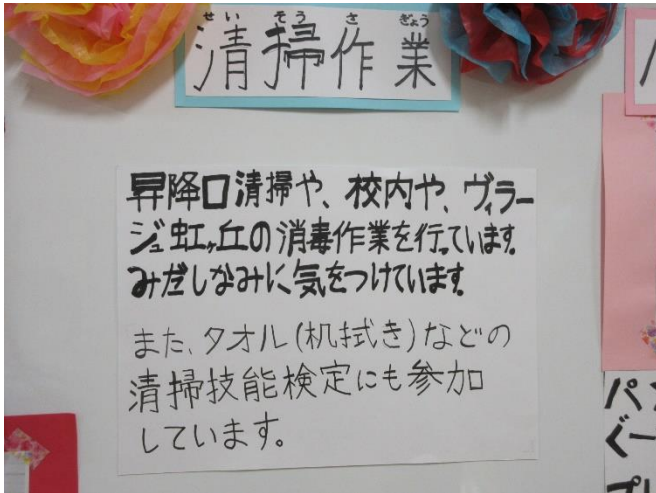 せいそうさぎょう
清掃作業
昇降口清掃や、校内や、ヴィラー
ジュ虹ヶ丘の消毒作業を行っています。
みだしなみに気をつけています。
また、タオル(机拭き)などの
清掃技能検定にも参加
しています。
パ
ぐー
プ